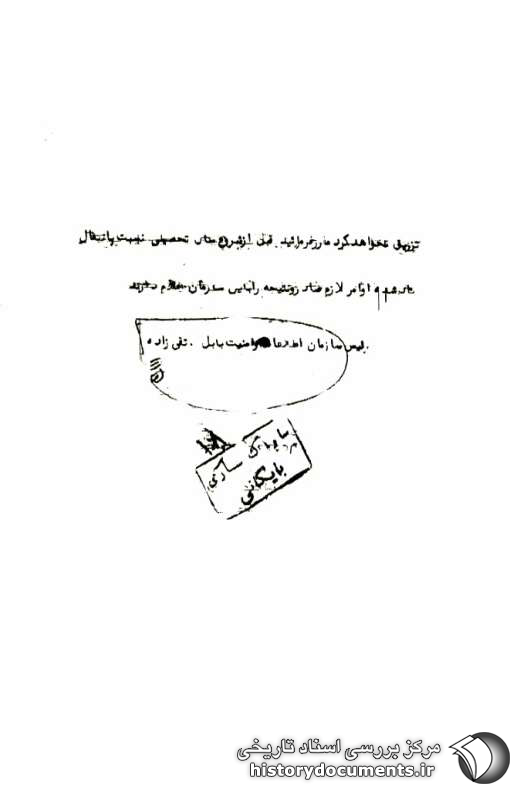 تزریق نخواهد کرد مقرر فرمائید قبل از شروع سال تحصیلی نسبت بانتقال
اوامر لازم صادر و نتیجه را باین سازمان اعلام دارند
رئیس سازمان اطلاعات و امنیت بابل . تقی زاده
ساواک ساری
بایگانی
مرکز بررسی اسناد تاریخی
historydocuments.ir